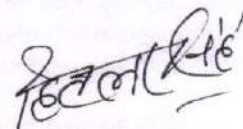 हितलाल सिंह